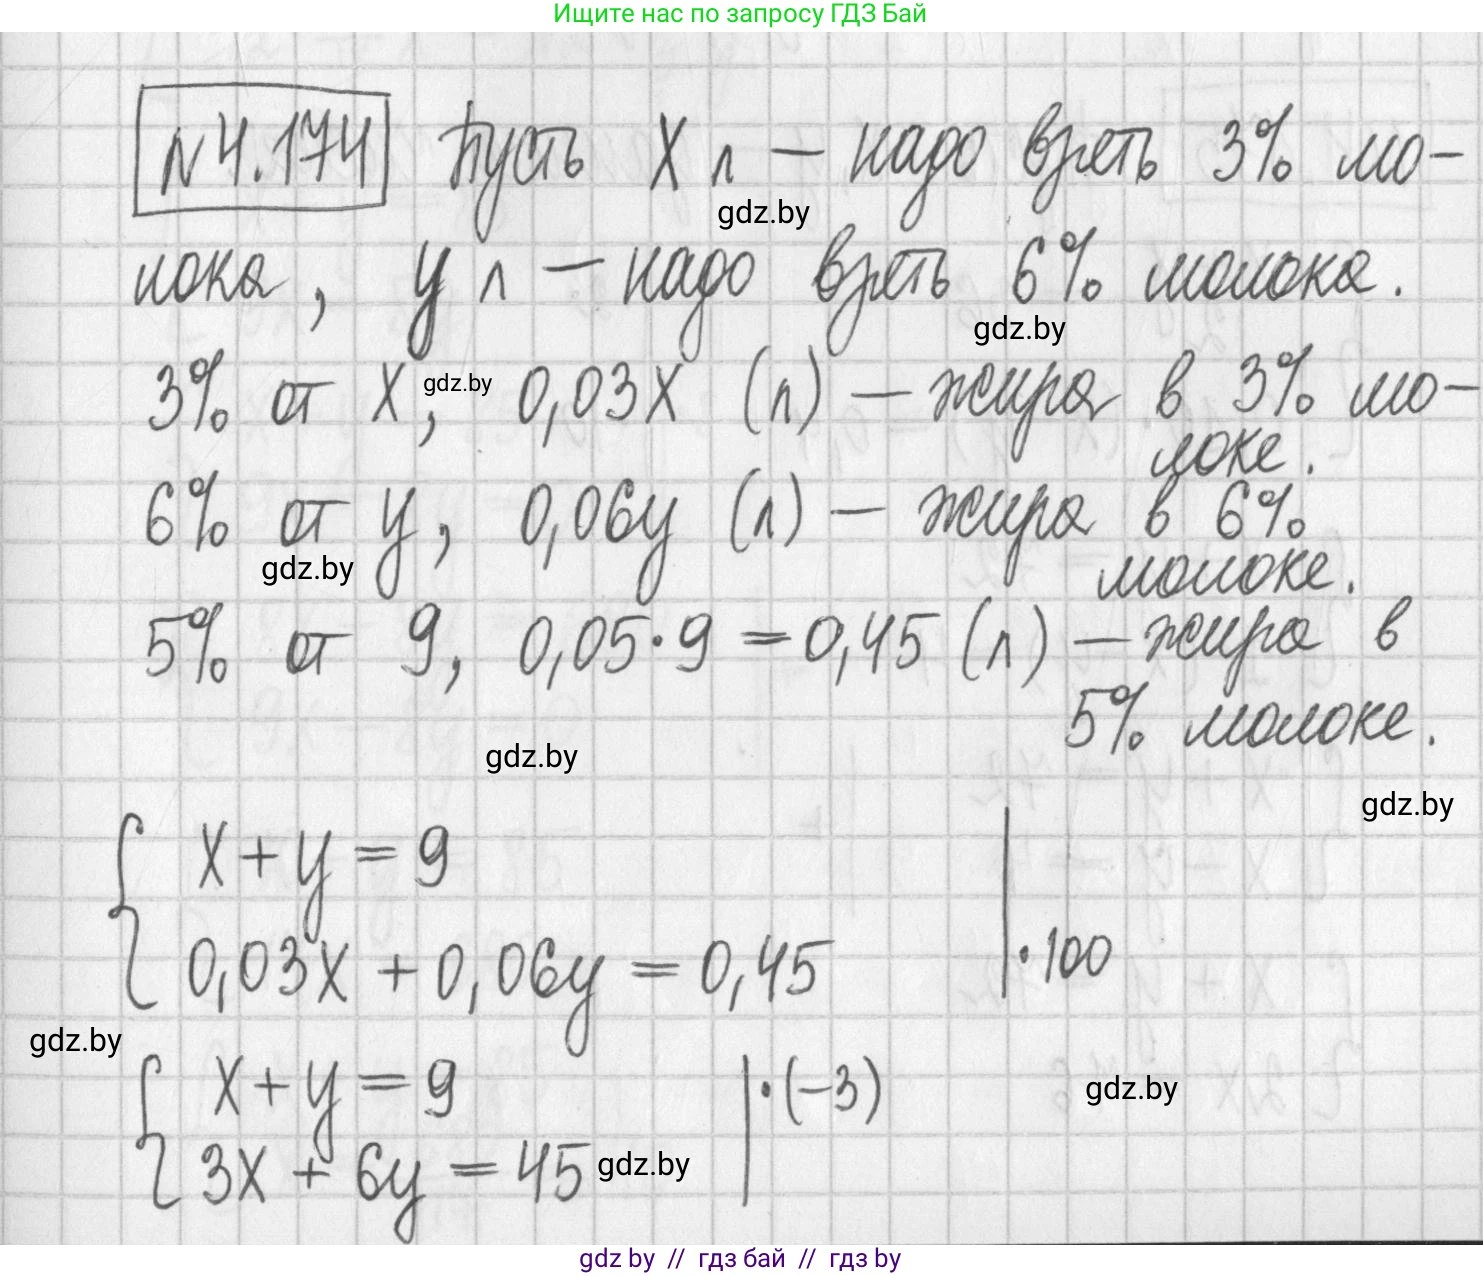 Ищите нас по запросу ГДЗ Бай
№4.174 Пусть х л – надо взять 3% мо-
gdz.by
лока, у л – надо взять 6% молока.
gdz.by
3% от х, gdz.by 0,03х (л) – жира в 3% мо-
локе.
6% от у, 0,06у (л) – жира в 6%
gdz.by
молоке.
5% от 9, 0,05·9 = 0,45 (л) – жира в
5% молоке.
gdz.by
gdz.by
{ х + у = 9
0,03х + 0,06у = 0,45 | ·100
gdz.by
{ х + у = 9 | ·(–3)
gdz.by
3х + 6у = 45 gdz.by
gdz by // гдз бай // гдз by